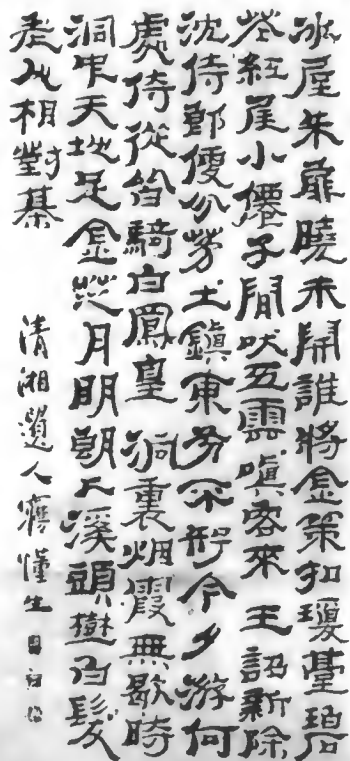 冰屋朱扉曉未開誰將金策扣瓊臺碧
花紅尾小僊子閒吠五雲嗔客來王詔新除
沈侍郎便分茅土鎮東方不知今夕游何
處侍從皆騎白鳳皇洞裏烟霞無歇時
洞中天地足金芝月明朝上溪頭樹白髮
老人相對棊
清湘遺人